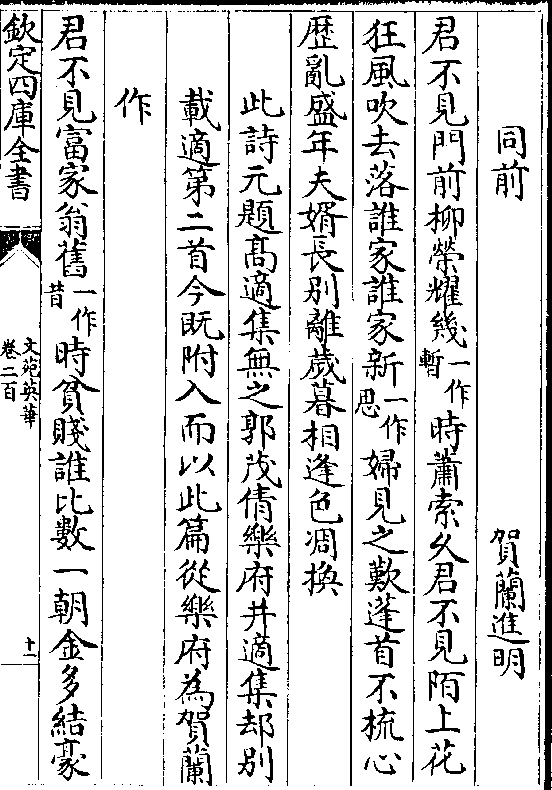 同前　賀蘭進明
君不見門前柳榮耀幾一作暫時蕭索久君不見陌上花
狂風吹去落誰家誰家新一作思婦見之歎蓬首不梳心
歴亂盛年夫婿長别離歲暮相逢色凋換
此詩元題髙適集無之郭茂倩樂府并適集却别
載適第二首今既附入而以此篇從樂府為賀蘭
作
君不見富家翁舊一作昔時貧賤誰比數一朝金多結豪
欽定四庫全書
文苑英華
卷二百
十一